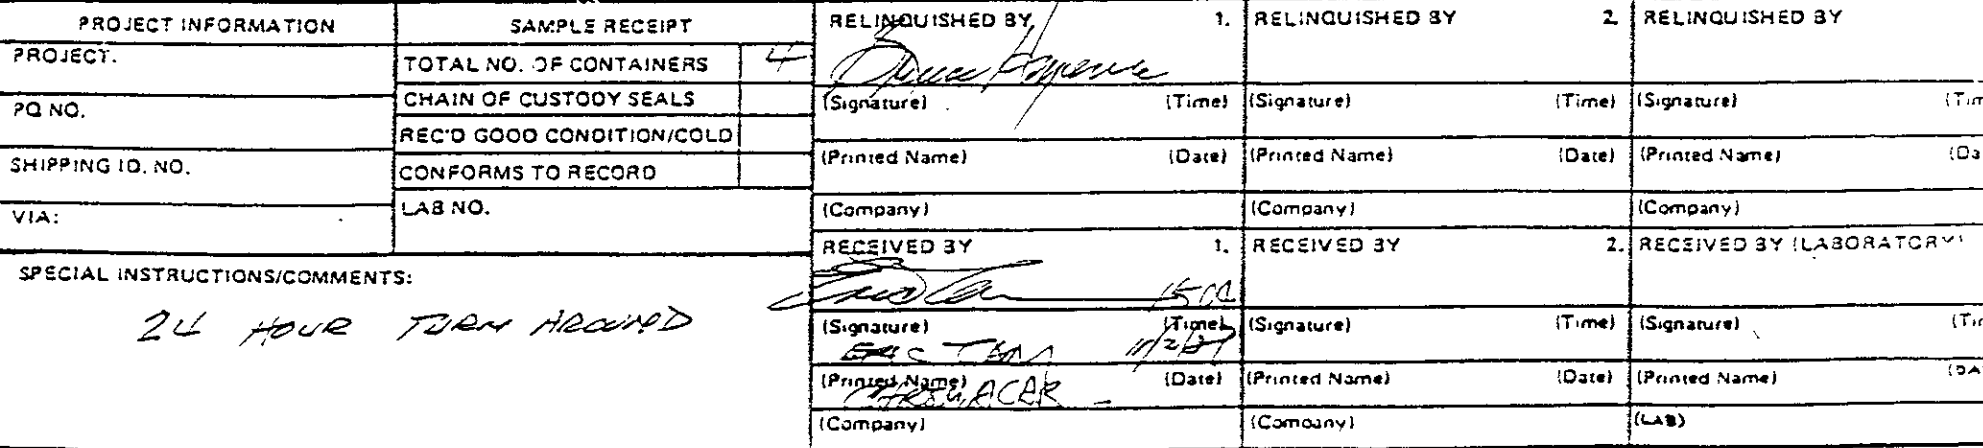 PROJECT INFORMATION
PROJECT.
PO NO.
SHIPPING ID. NO.
VIA:
SAMPLE RECEIPT
TOTAL NO. OF CONTAINERS 4
CHAIN OF CUSTODY SEALS
REC'D GOOD CONDITION/COLD
CONFORMS TO RECORD
LAB NO.
SPECIAL INSTRUCTIONS/COMMENTS:
24 HOUR TURN AROUND
RELINQUISHED BY 1.
(Signature) (Time)
(Printed Name) (Date)
(Company)
RELINQUISHED BY 2.
(Signature) (Time)
(Printed Name) (Date)
(Company)
RELINQUISHED BY
(Signature) (Tim
(Printed Name) (Da
(Company)
RECEIVED BY 1.
(Signature) (Time)
ERIC TAM
(Printed Name) (Date)
(Company)
RECEIVED BY 2.
(Signature) (Time)
(Printed Name) (Date)
(Company)
RECEIVED BY (LABORATORY)
(Signature) (Tim
(Printed Name) (DA
(LAB)